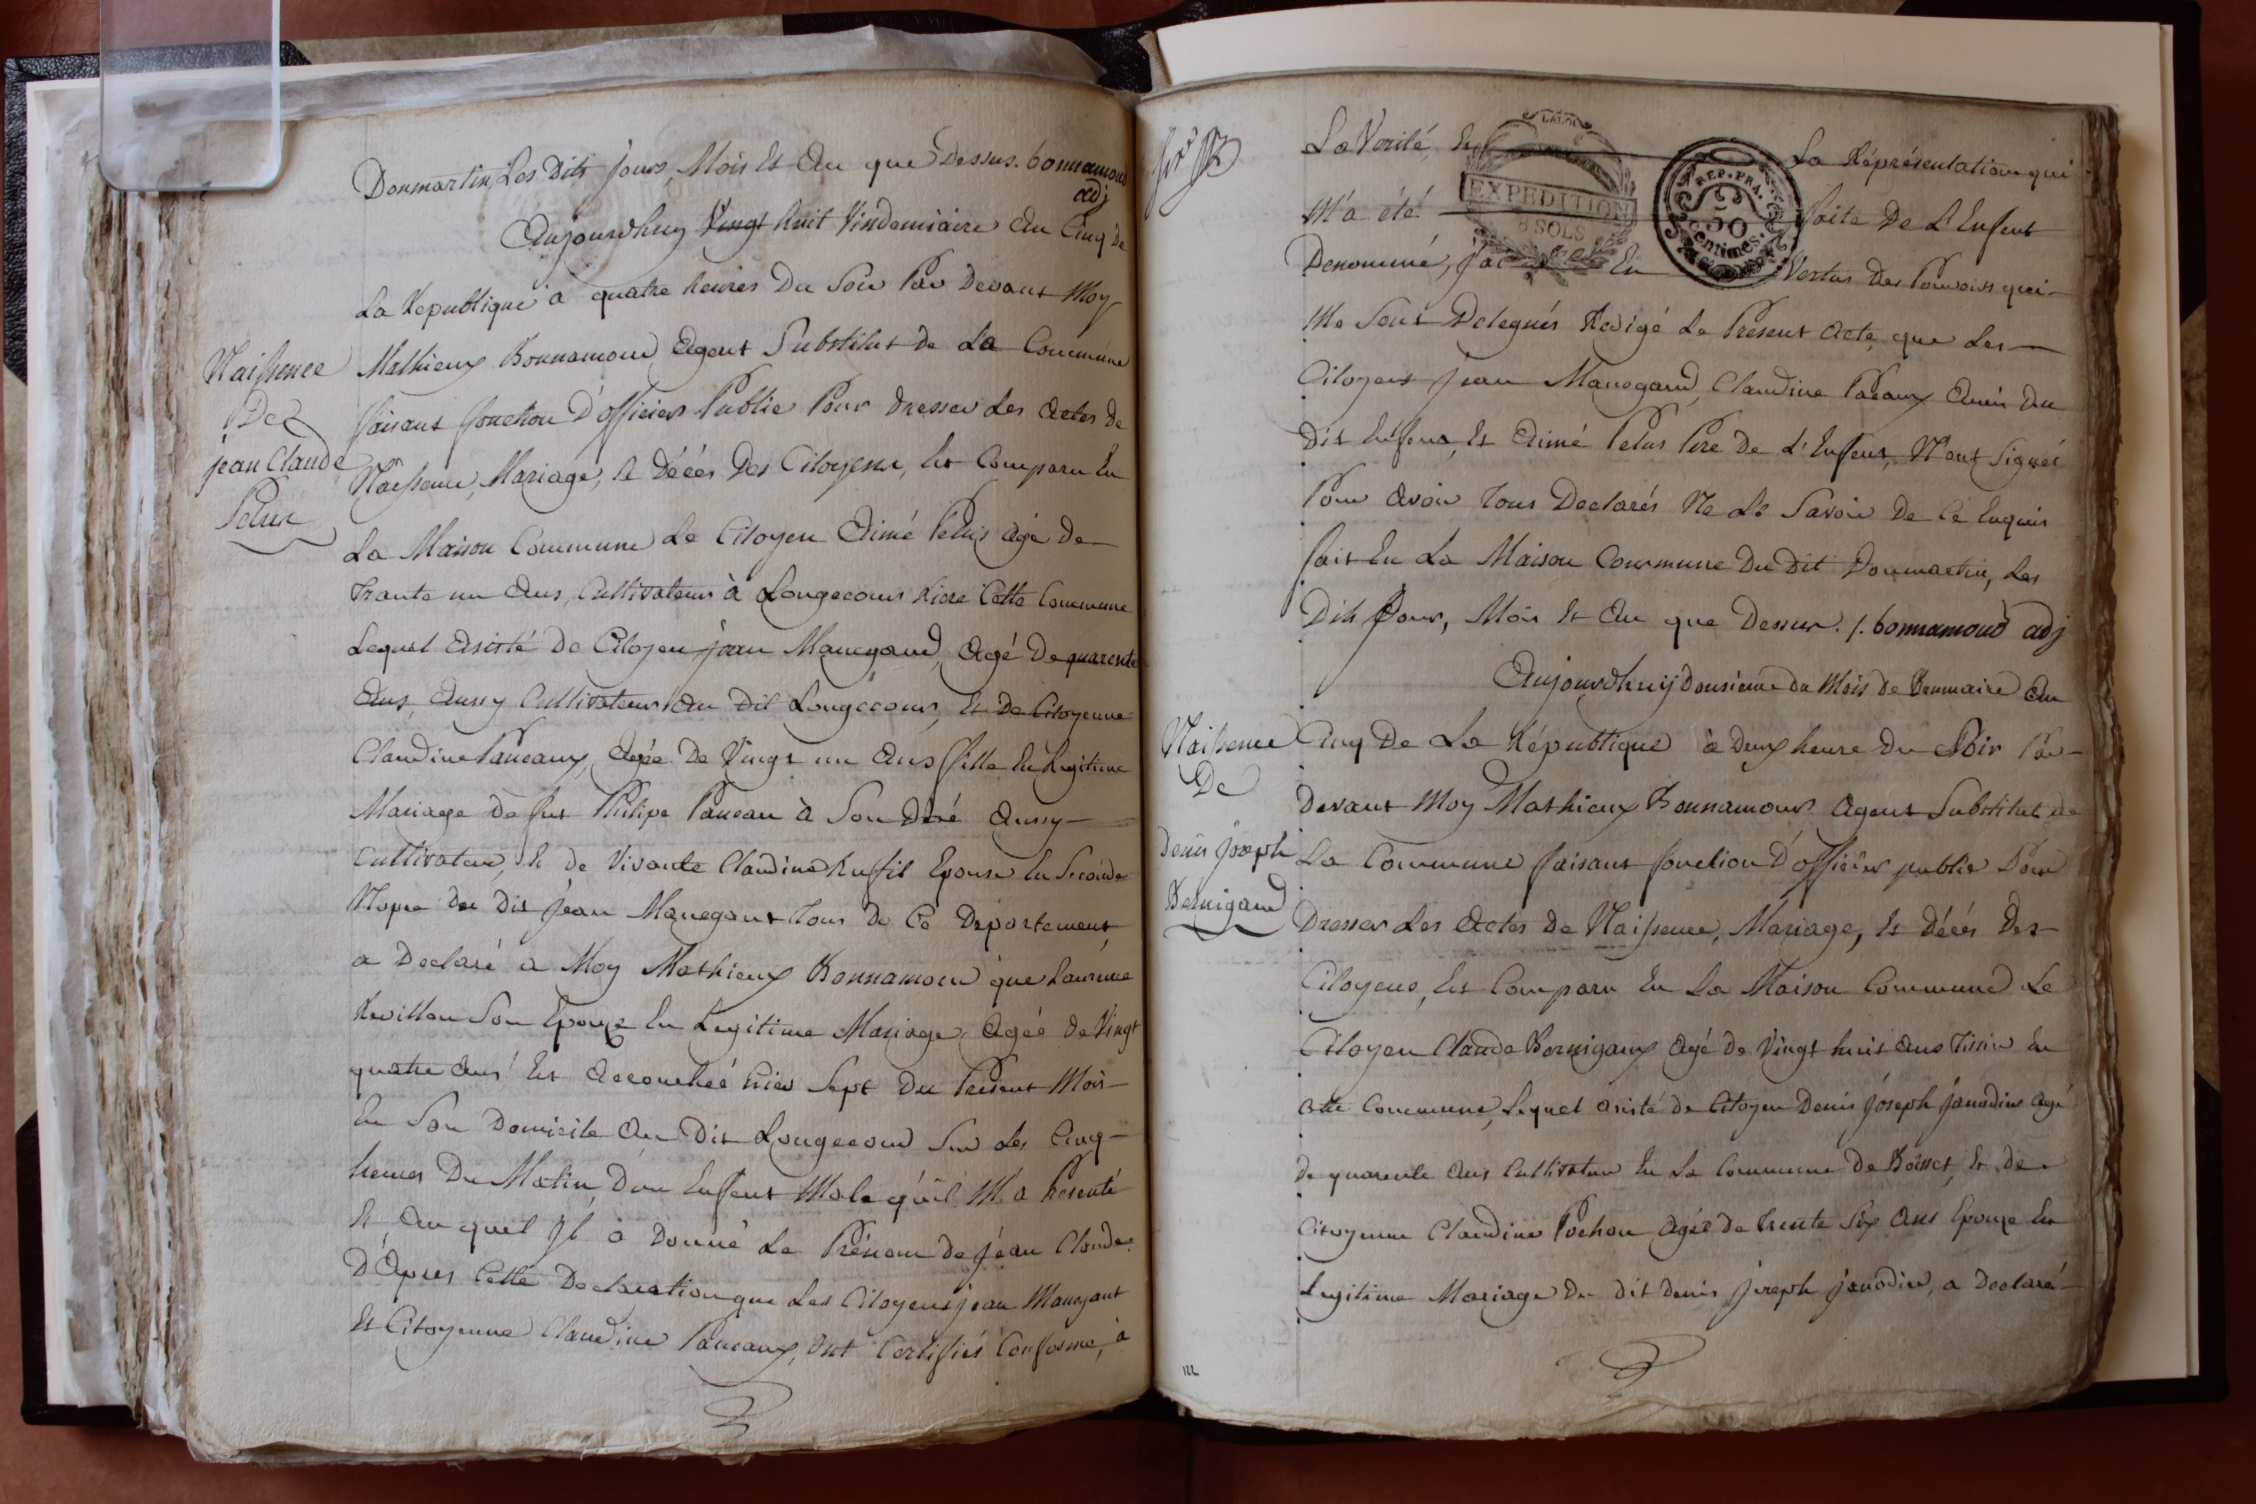 Donmartin, Les Dits jours Mois Et An que Dessus. bonnamour
adj
Aujourdhuy Vingt huit Vindemiaire An Cinq de
La Republique a quatre heures Du Soir Par Devant Moy
Naissence
De
jean Claude
Pelus
Mathieux Bonnamour Agent Substitut de La Commune
faisant fonction D'officier Public Pour dresser Les Actes de
Naissence, Mariage, Et Décés Des Citoyens, Est Comparu En
La Maison Commune Le Citoyen Aimé Pelus agé De
Trante un Ans, Cultivateur à Longecour Riere Cette Commune
Lequel Asisté De Citoyen jean Manegand, Agé De quarente
Ans, Aussy Cultivateur Au Dit Longecour, Et De Citoyenne
Claudine Paneaux, Agée De Vingt un Ans fille En Legitime
Mariage De fut Philipe Paneau à Son Dexé Aussy
Cultivateur, Et de Vivante Claudine Epouse En Seconde
Nopse Du Dit Jean Manegant Tous De Ce Departement,
a Declaré a Moy Mathieux Bonnamour que Laurence
Revillon Son Epouze En Legitime Mariage, Agée De Vingt
quatre Ans Est Accouchéé hier Sept Du Present Mois
En Son Domicile Au Dit Longecour Sur Les Cinq
heures Du Matin D'un Enfent Male qu'il M'a Presenté
Et Au quel Jl a Donné Le Prénom De Jean Claude
D'Apres Cette Declaration que Les Citoyens jean Manegant
Et Citoyenne Claudine Paneaux, Ont Certifiés Conforme, a
La Verité, Et La Réprésentation qui
LA LOI
EXPEDITION
SOLS
REP. FRA.
50
Centimes
M'a été faite De L'Enfent
Denommé, j'ai En Vertus Des Pouvoirs qui
Me Sont Delegués Redigé Le Present Acte, que Les
Citoyens Jean Manegand, Claudine Paneaux Amis Du
Dit Enfent, Et Aimé Pelus Pere De L'Enfent, N'ont Signés
Pour Avoir Tous Declarés Ne Le Savoir De Ce Enquis
fait En La Maison Commune Du Dit Donmartin, Les
Dits Jour, Mois Et An que Dessus. /. bonnamour adj
Aujourdhuij Dousieme du Mois de Brumaire An
Naissence
De
Denis joseph
Bernigaud
Cinq De La République à Deux heure Du Soir Par
Devant Moy Mathieux Bonnamour Agent Substitut de
La Commune faisant fonction D'officier public Pour
Dresser Les Actes De Naissence, Mariage, Et Décés Des
Citoyens, Est Comparu En La Maison Commune Le
Citoyen Claude Bernigaux Agé De Vingt huit Ans Tissier En
Cette Commune, Lequel asisté De Citoyen Denis Joseph Janodin Agé
De quarente Ans Cultivateur En La Commune De Boisset, Et De
Citoyenne Claudine Pochon Agée De Trente Six Ans Epouze En
Legitime Mariage Du Dit Denis Joseph Janodin, a Declaré
122